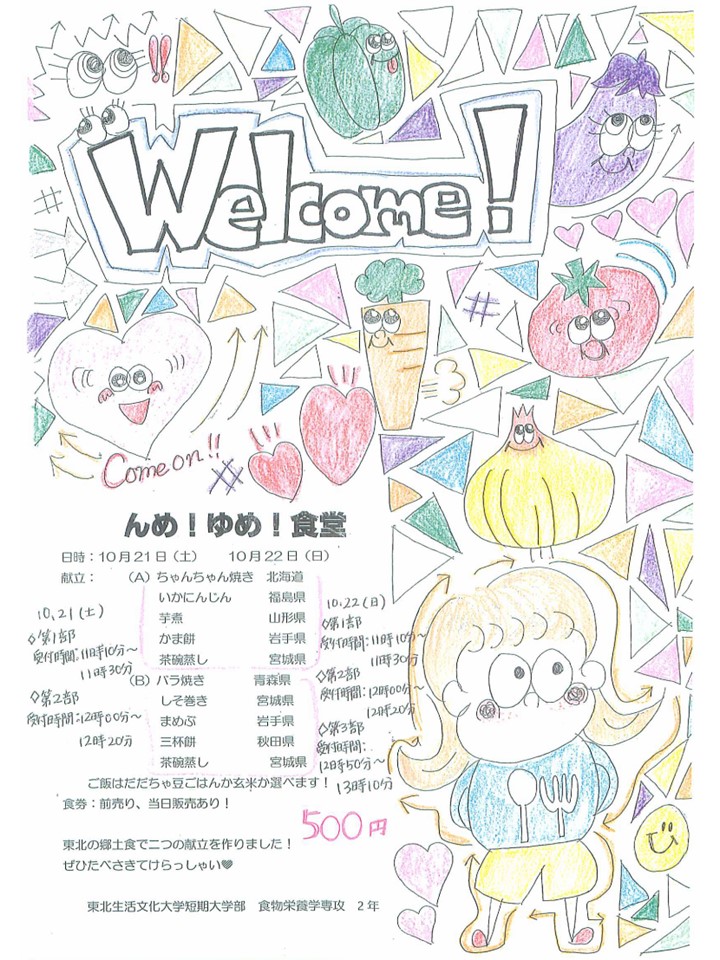 Welcome!
Come on!!
んめ！ゆめ！食堂
日時：１０月２１日（土）　１０月２２日（日）
献立：　（A）ちゃんちゃん焼き　北海道
いかにんじん　福島県
芋煮　山形県
かま餅　岩手県
茶碗蒸し　宮城県
（B）バラ焼き　青森県
しそ巻き　宮城県
まめぶ　岩手県
三杯餅　秋田県
茶碗蒸し　宮城県
10.21(土)
◇第1部
受付時間：11時10分～
11時30分
◇第2部
受付時間：12時00分～
12時20分
10.22(日)
◇第1部
受付時間：11時10分～
11時30分
◇第2部
受付時間：12時00分～
12時20分
◇第3部
受付時間：
12時50分～
13時10分
ご飯はだだちゃ豆ごはんか玄米か選べます！
食券：前売り、当日販売あり！
500円
東北の郷土食で二つの献立を作りました！
ぜひたべさきてけらっしゃい♥
東北生活文化大学短期大学部　食物栄養学専攻　２年